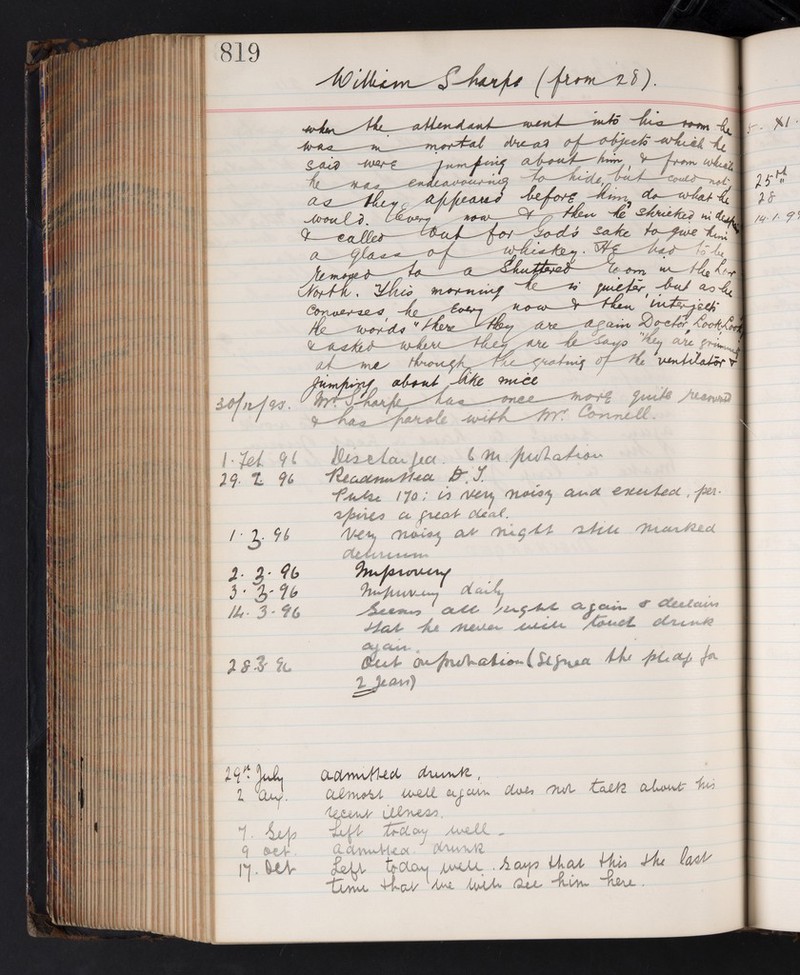 819
William Sharpe (from 28).
when the attendant went into his room he
was in mortal dread of objects which he
said were jumping about him, & from which
he was endeavouring to hide, but could not
as they appeared before him, do what he
would. Every now & then he shrieked in despair
& called out for God's sake to give him
a glass of whiskey. He had to be
removed to a Shuttered Room in the
North. This morning he is quieter but as he
converses, he every now & then interjects
the words "there they are again Doctor, Look, Look
& asked where they are he says "they are grinning
at me through the grating of the ventilator &
jumping about like mice
30/12/95. Mr. Sharpe has once more quite recovered
& has parole with Mr. Connell.
1. Feb 96 Discharged. 6 m. probation
29. 2. 96 Readmitted D.T.
Pulse 170; is very noisy and excited, per-
spires a great deal.
1. 3. 96 Very noisy at night still marked
delirium
2. 3. 96 Improving
3. 3. 96 Improving daily
14. 3. 96 Seems all right again & declares
that he never will touch drink
again.
28 3 96 Out on probation (Signed the pledge for
2 years)
29th July admitted drunk.
2 Aug. almost well again does not talk about his
recent illness.
7. Sep Left today well -
9 Oct. admitted drunk
17. Oct Left today well. Says that this the last
time that we will see him here.
25th
28